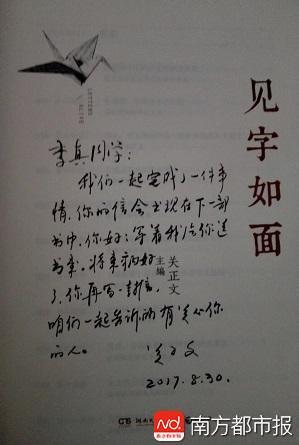 见字如面
关正文
主编
李真同学：
我们一起完成了一件事
情，你的信会出现在下一部
书中，你好好等着我给你送
书来。将来病好
了，你再写一封信，
咱们一起告诉所有关心你
的人。
关正文
2017.8.30.
湖南
南方都市报